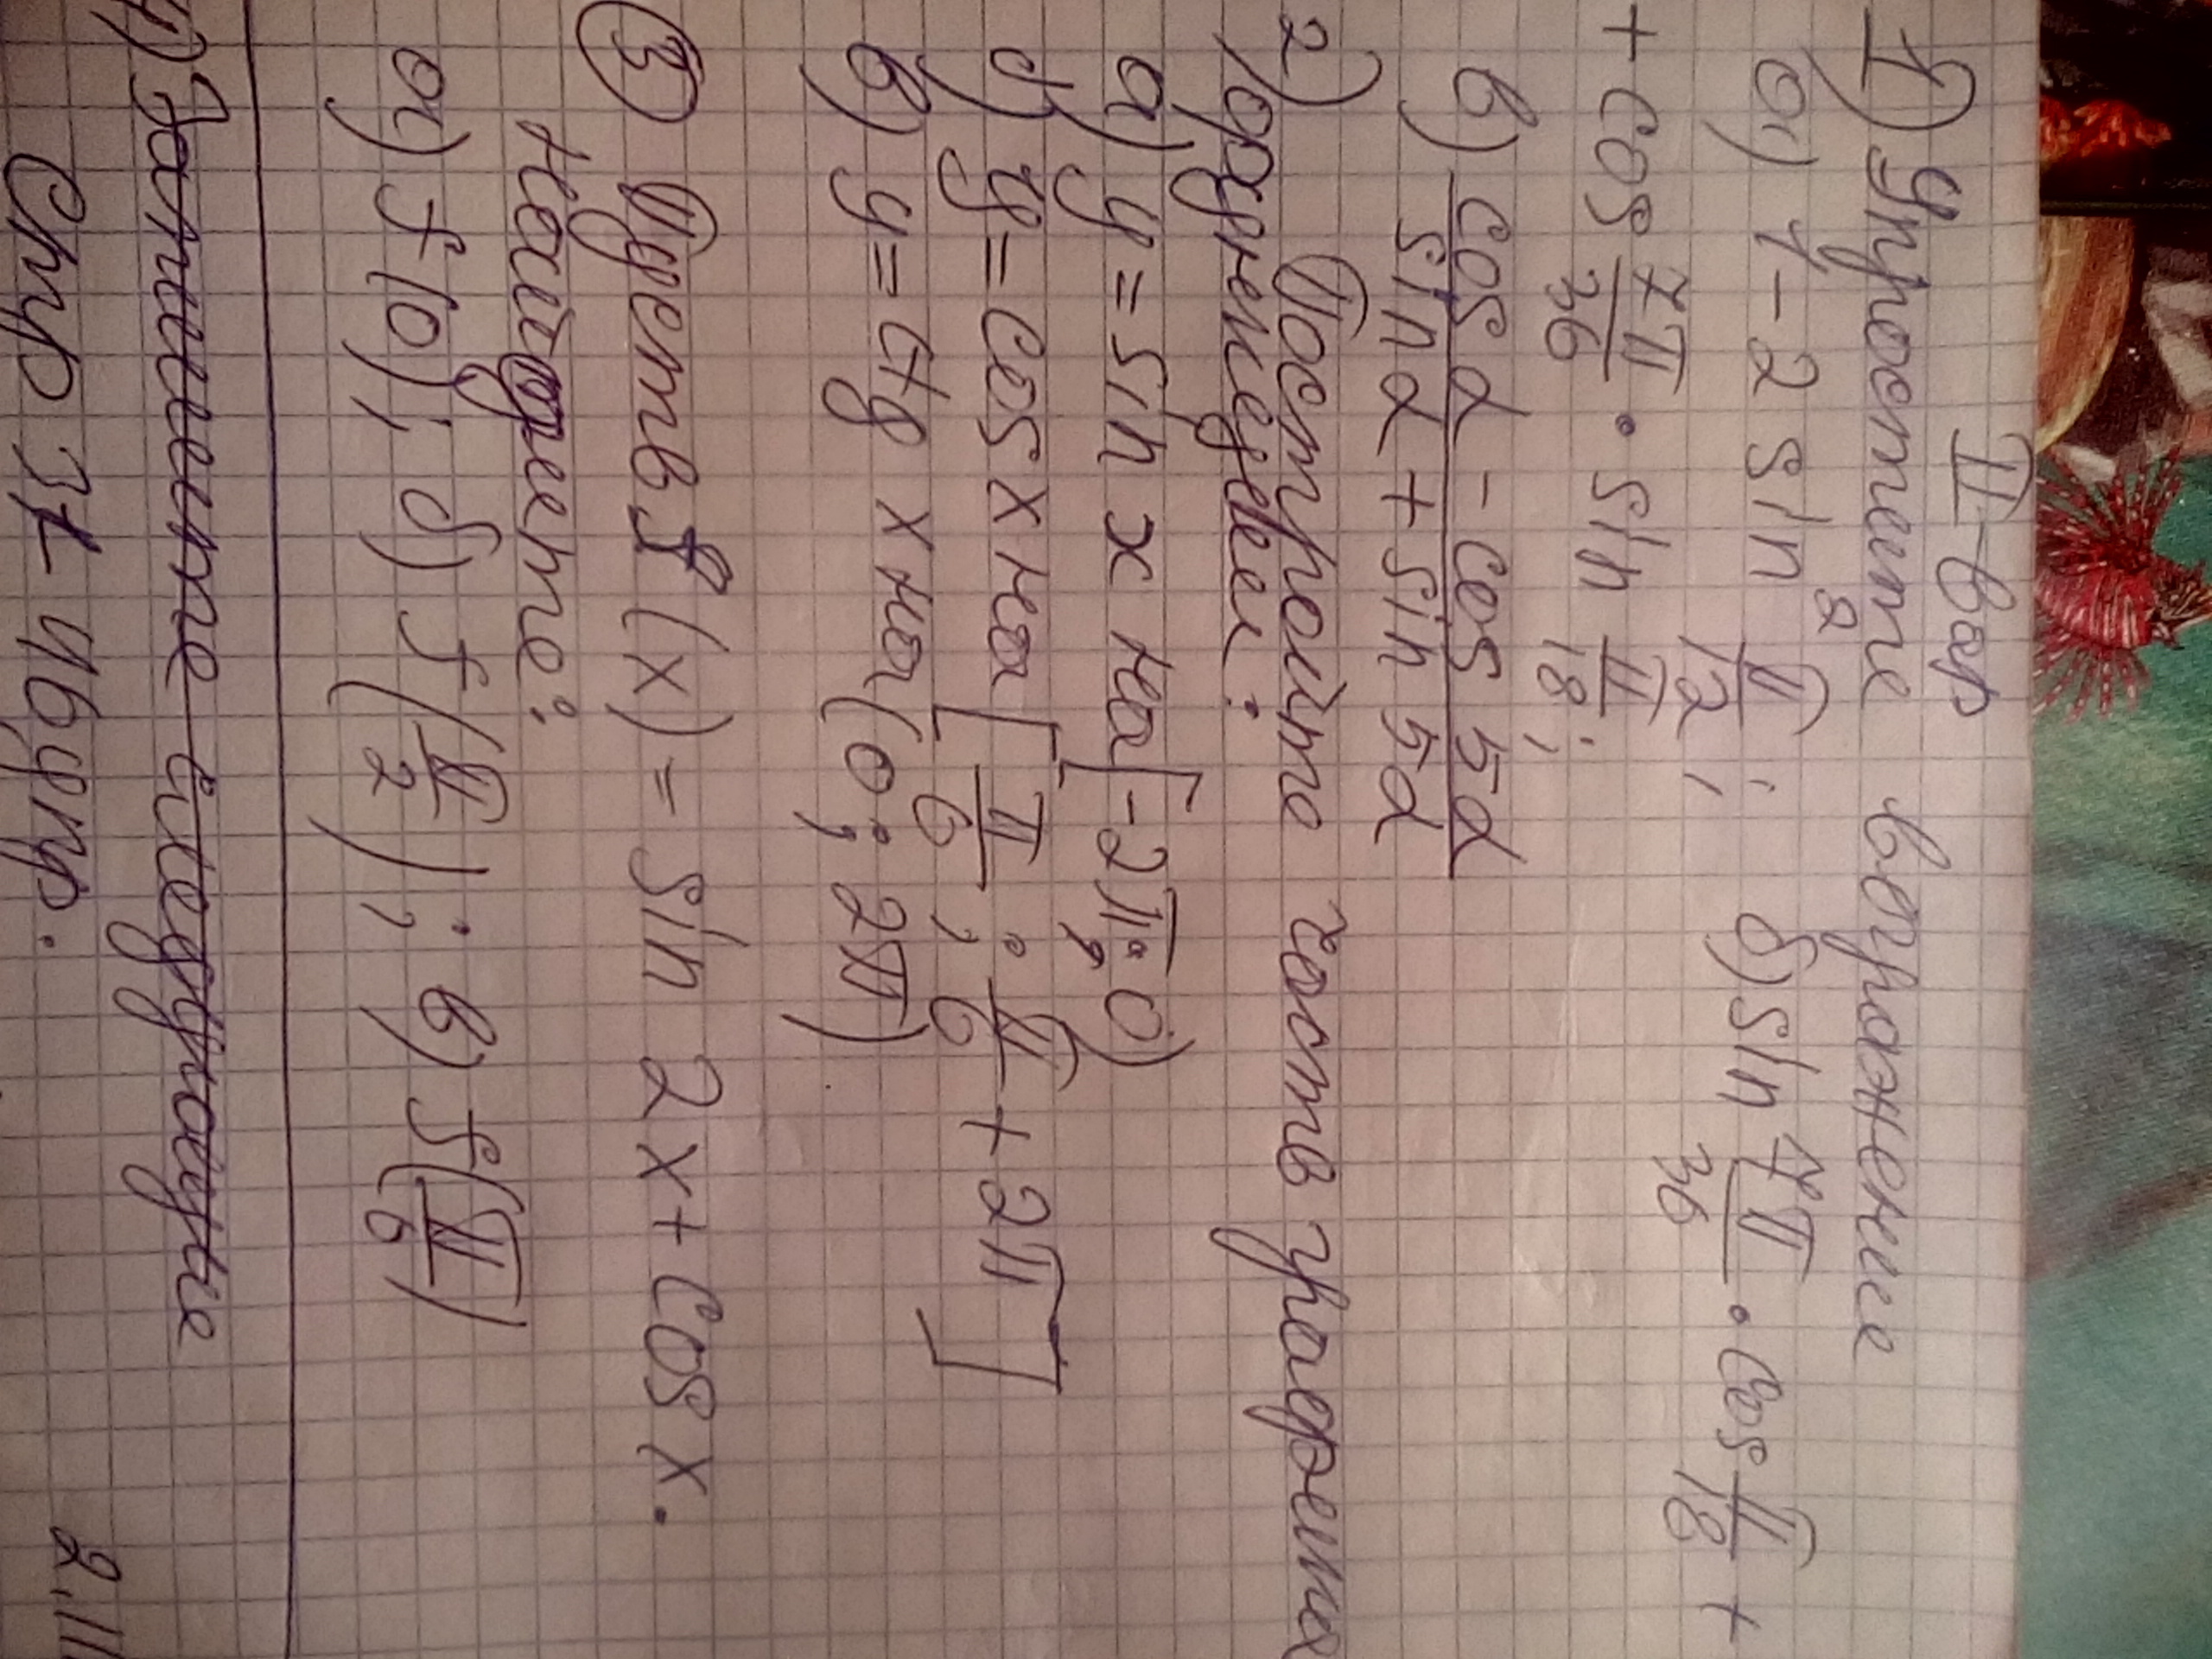 II-вар
1) Упростите выражение
а) 1 - 2 sin² π/2 ; б) sin 7π/36 · cos π/18 +
+ cos 7π/36 · sin π/18 ;
в) (cos α - cos 5α)/(sin α + sin 5α)
2) Постройте часть графета
функции:
а) y = sin x на [-2π; 0)
б) y = cos x на [π/6 ; π/6 + 2π]
в) y = ctg x на (0; 2π)
3) Пусть f(x) = sin 2x + cos x.
найдите:
а) f(0); б) f(π/2); в) f(π/6)
4) Запишите
стр 37 46упр.
2.11